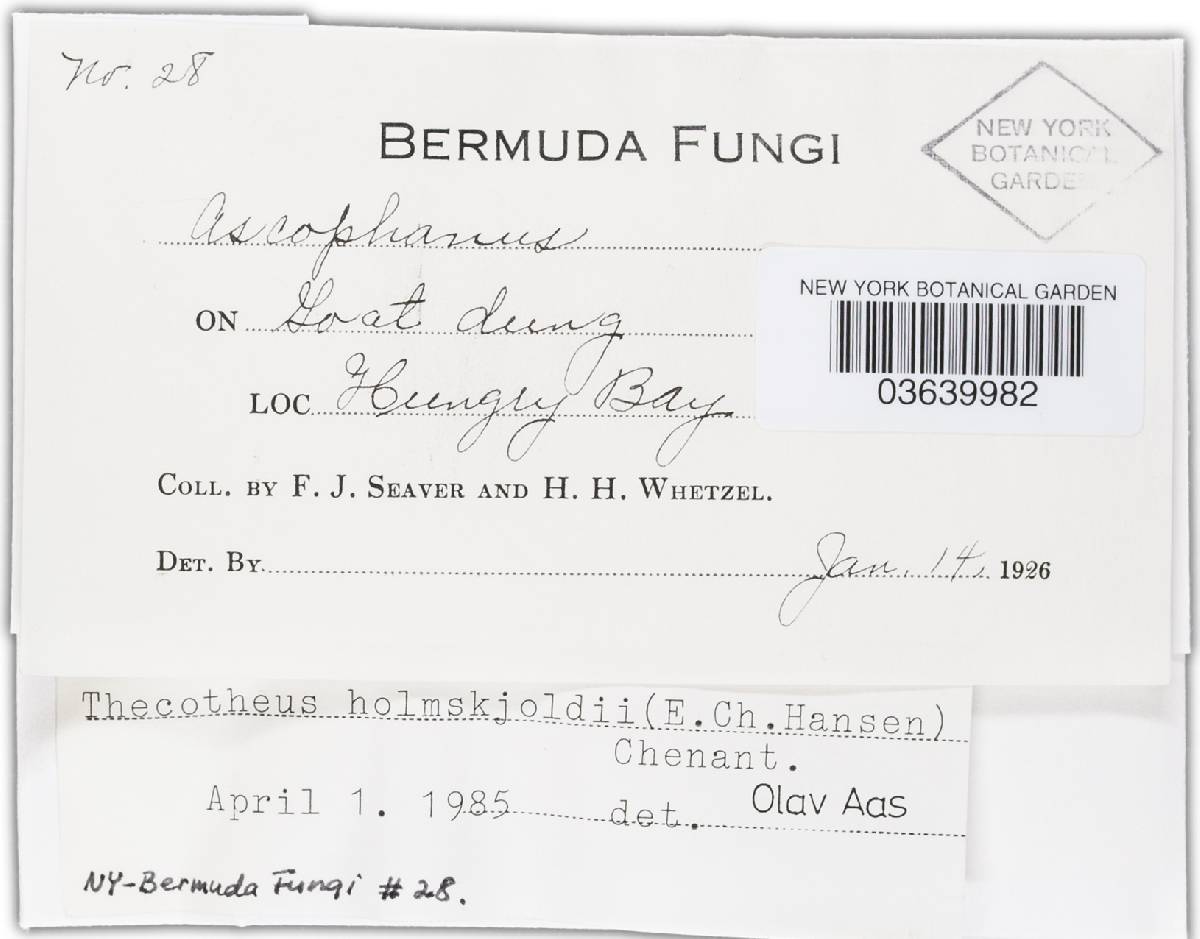 No. 28
BERMUDA FUNGI
NEW YORK
BOTANICAL
GARDEN
Ascophanus
ON Goat dung
LOC Hungry Bay
NEW YORK BOTANICAL GARDEN
03639982
COLL. BY F. J. SEAVER AND H. H. WHETZEL.
DET. BY Jan. 14, 1926
Thecotheus holmskjoldii(E.Ch.Hansen)
Chenant.
April 1. 1985 det. Olav Aas
NY-Bermuda Fungi # 28.